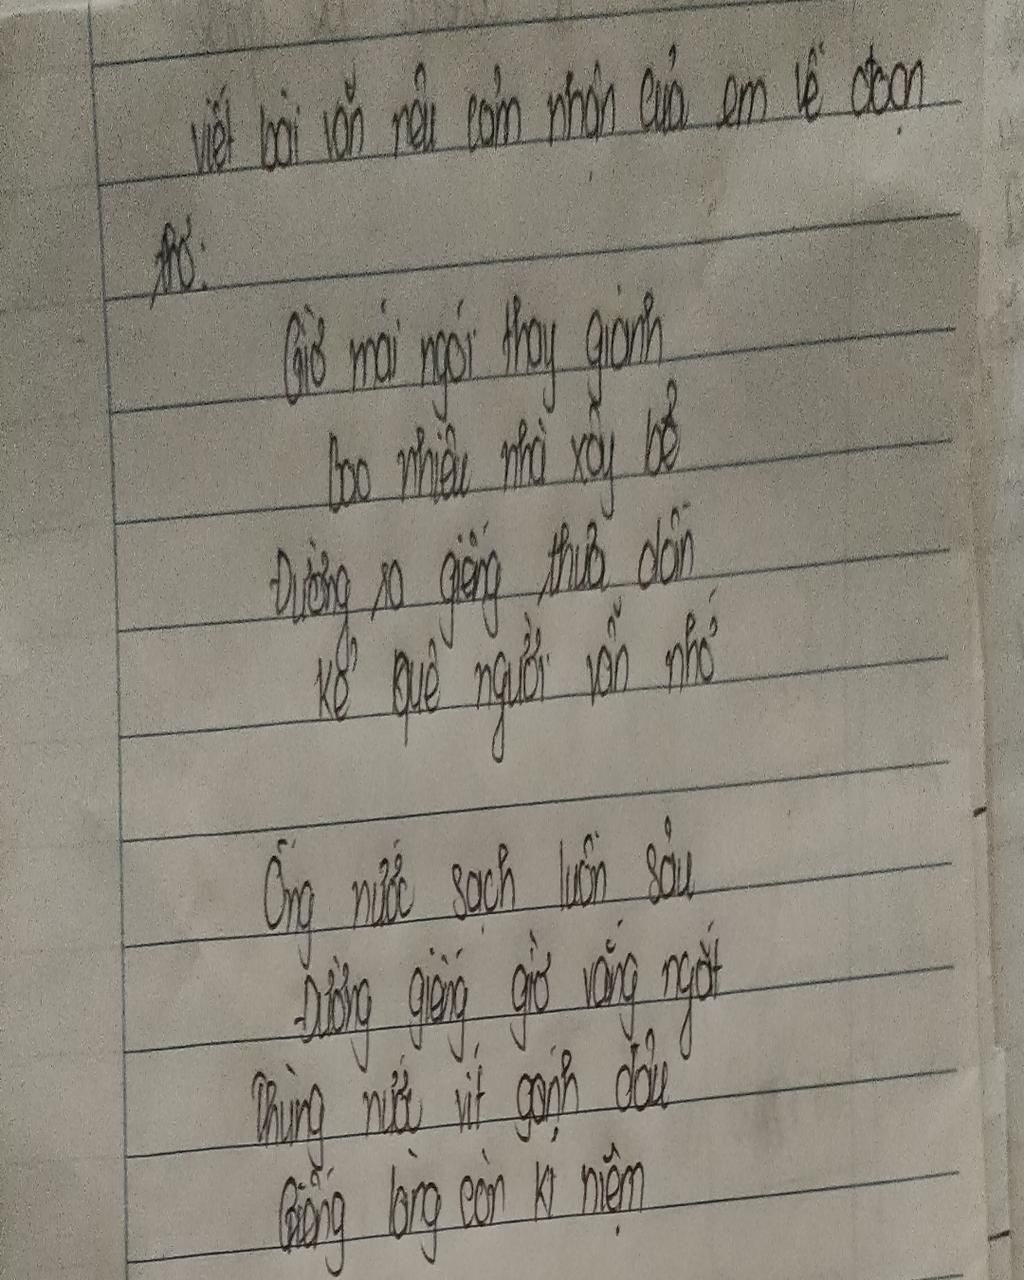 viết bài văn nêu cảm nhận của em về đoạn
thơ:
Giờ mái ngói thay gianh
Bao nhiêu nhà xây bể
Đường xa giếng thưa dần
Kẻ quê người vẫn nhớ
Ống nước sạch luồn sâu
Đường giếng giờ vắng ngắt
Thùng nước vít gánh đâu
Giếng làng còn kỉ niệm